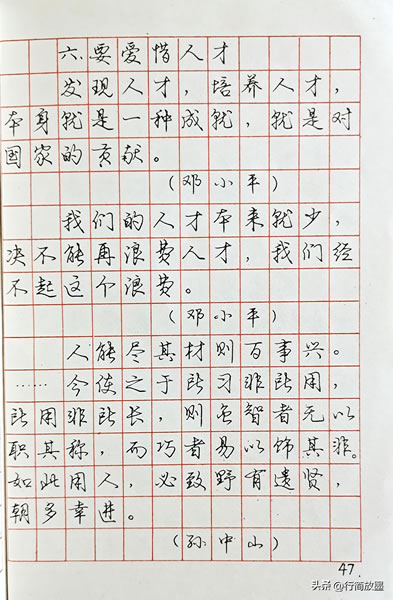 六.要爱惜人才
发现人才，培养人才，
本身就是一种成就，就是对
国家的贡献。
（邓小平）
我们的人才本来就少，
决不能再浪费人才，我们经
不起这个浪费。
（邓小平）
人能尽其材则百事兴。
……今使之于所习非所用，
所用非所长，则虽智者无以
职其称，而巧者易以饰其非。
如此用人，必致野有遗贤，
朝多幸进。
（孙中山）
47.
头条@行商放墨